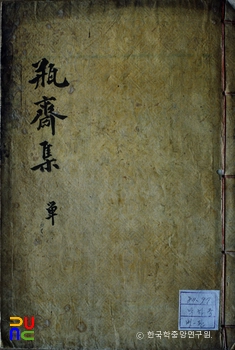 瓶齋集
單
ⓒ 한국학중앙연구원